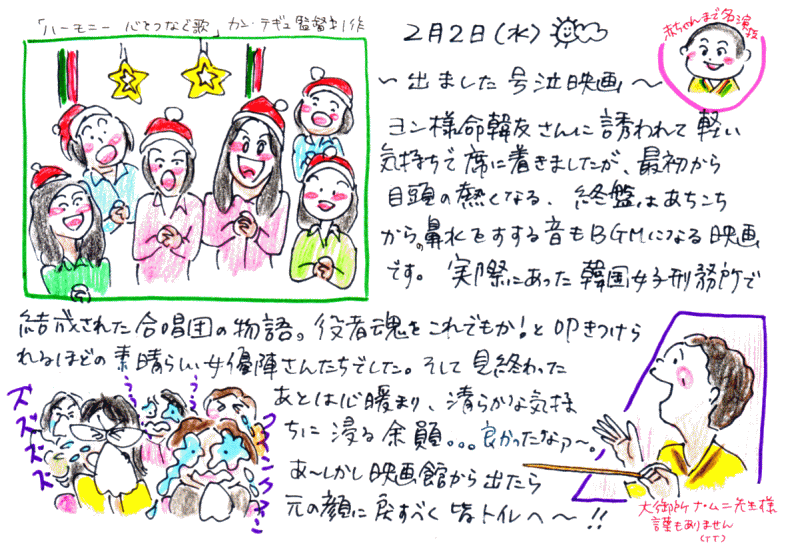 「ハーモニー 心をつなぐ歌」カン・テギュ監督 制作
2月2日(水)
赤ちゃんまで名演技
〜出ました号泣映画〜
ヨン様命韓友さんに誘われて軽い
気持ちで席に着きましたが、最初から
目頭の熱くなる、終盤はあちこち
から。鼻水をすする音もBGMになる映画
です。実際にあった韓国女子刑務所で
結成された合唱団の物語。役者魂をこれでもか!と叩きつけら
れるほどの素晴らしい女優陣さんたちでした。そして見終わった
あとは心暖まり、清らかな気持
ちに浸る余韻...良かったなァ〜。
あ〜しかし映画館から出たら
元の顔に戻すべく皆トイレへ〜!!
ズズズズ
うう
うう
ファンファン
大御所ナ・ムニ先生様
謹もありません
(TT)